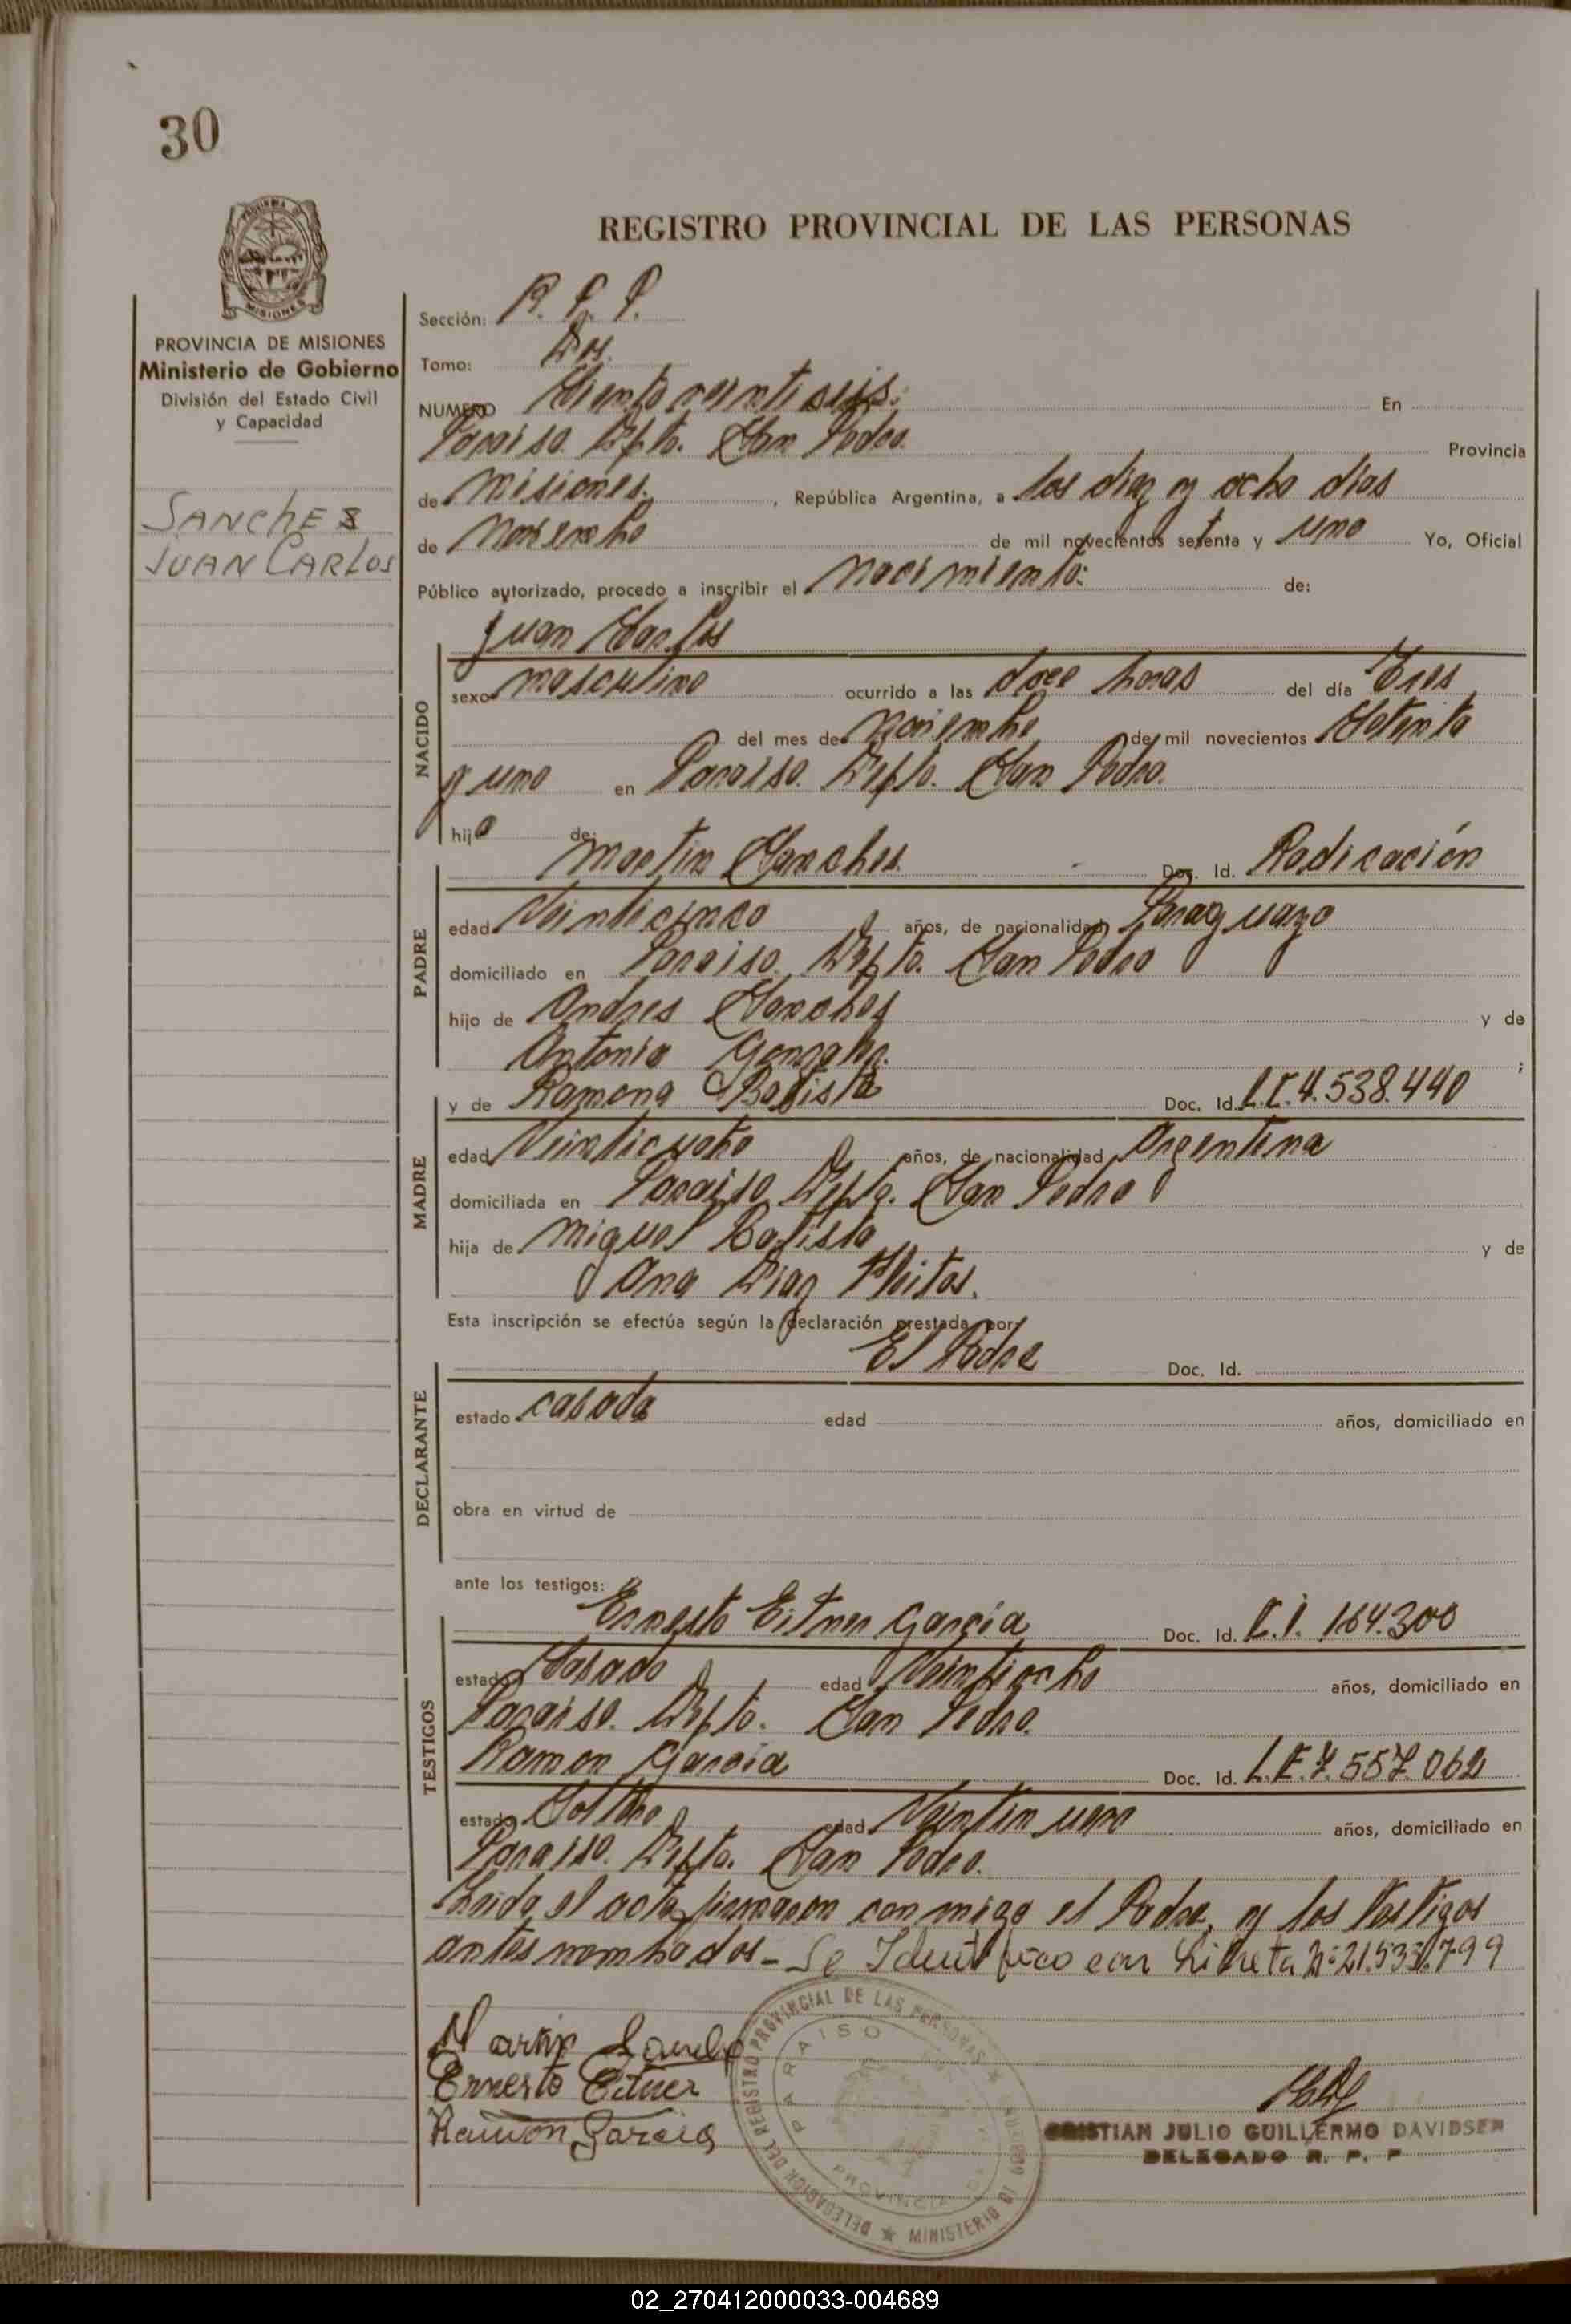 30
REGISTRO PROVINCIAL DE LAS PERSONAS
PROVINCIA DE MISIONES
Ministerio de Gobierno
División del Estado Civil
y Capacidad
SANCHEZ
JUAN CARLOS
Sección: R. P. P.
Tomo: Dos.
NUMERO Ciento veintiseis. En
Paraiso. Depto. San Pedro. Provincia
de Misiones. , República Argentina, a los diez y ocho dias
de Noviembre de mil novecientos setenta y uno Yo, Oficial
Público autorizado, procedo a inscribir el Nacimiento: de:
Juan Carlos
NACIDO
sexo masculino ocurrido a las doce horas del día Tres
del mes de Noviembre de mil novecientos Setenta
y uno en Paraiso. Depto. San Pedro.
hijo de:
Martin Sanches Doc. Id. Radicación
PADRE
edad Veinticinco años, de nacionalidad Paraguayo
domiciliado en Paraiso. Depto. San Pedro
hijo de Andres Sanches y de
Antonia Gonzales. ;
y de Ramona Batista Doc. Id. L.C. 4.538.440
MADRE
edad Veinticuatro años, de nacionalidad Argentina
domiciliada en Paraiso Depto. San Pedro
hija de Miguel Batista y de
Ana Diaz
Esta inscripción se efectúa según la declaración prestada por:
El Padre Doc. Id.
DECLARANTE
estado casado edad años, domiciliado en
obra en virtud de
ante los testigos:
Ernesto Eitner Garcia Doc. Id. C.I. 164.300
TESTIGOS
estado Casado edad Veintiocho años, domiciliado en
Paraiso. Depto. San Pedro.
Ramon Garcia Doc. Id. L.E. 7.557.062
estado Soltero edad Veintiun años, domiciliado en
Paraiso. Depto. San Pedro.
Leida el acta firmaron con migo el Padre, y los Testigos
antes nombrados - Se Identifico con Libreta Nº 21.533.799
Martin
Ernesto Eitner
Ramon Garcia
DELEGACION DEL REGISTRO PROVINCIAL DE LAS PERSONAS ★ MINISTERIO DE
PARAISO
PROVINCIA DE
CRISTIAN JULIO GUILLERMO DAVIDSEN
DELEGADO R. P. P
02_270412000033-004689